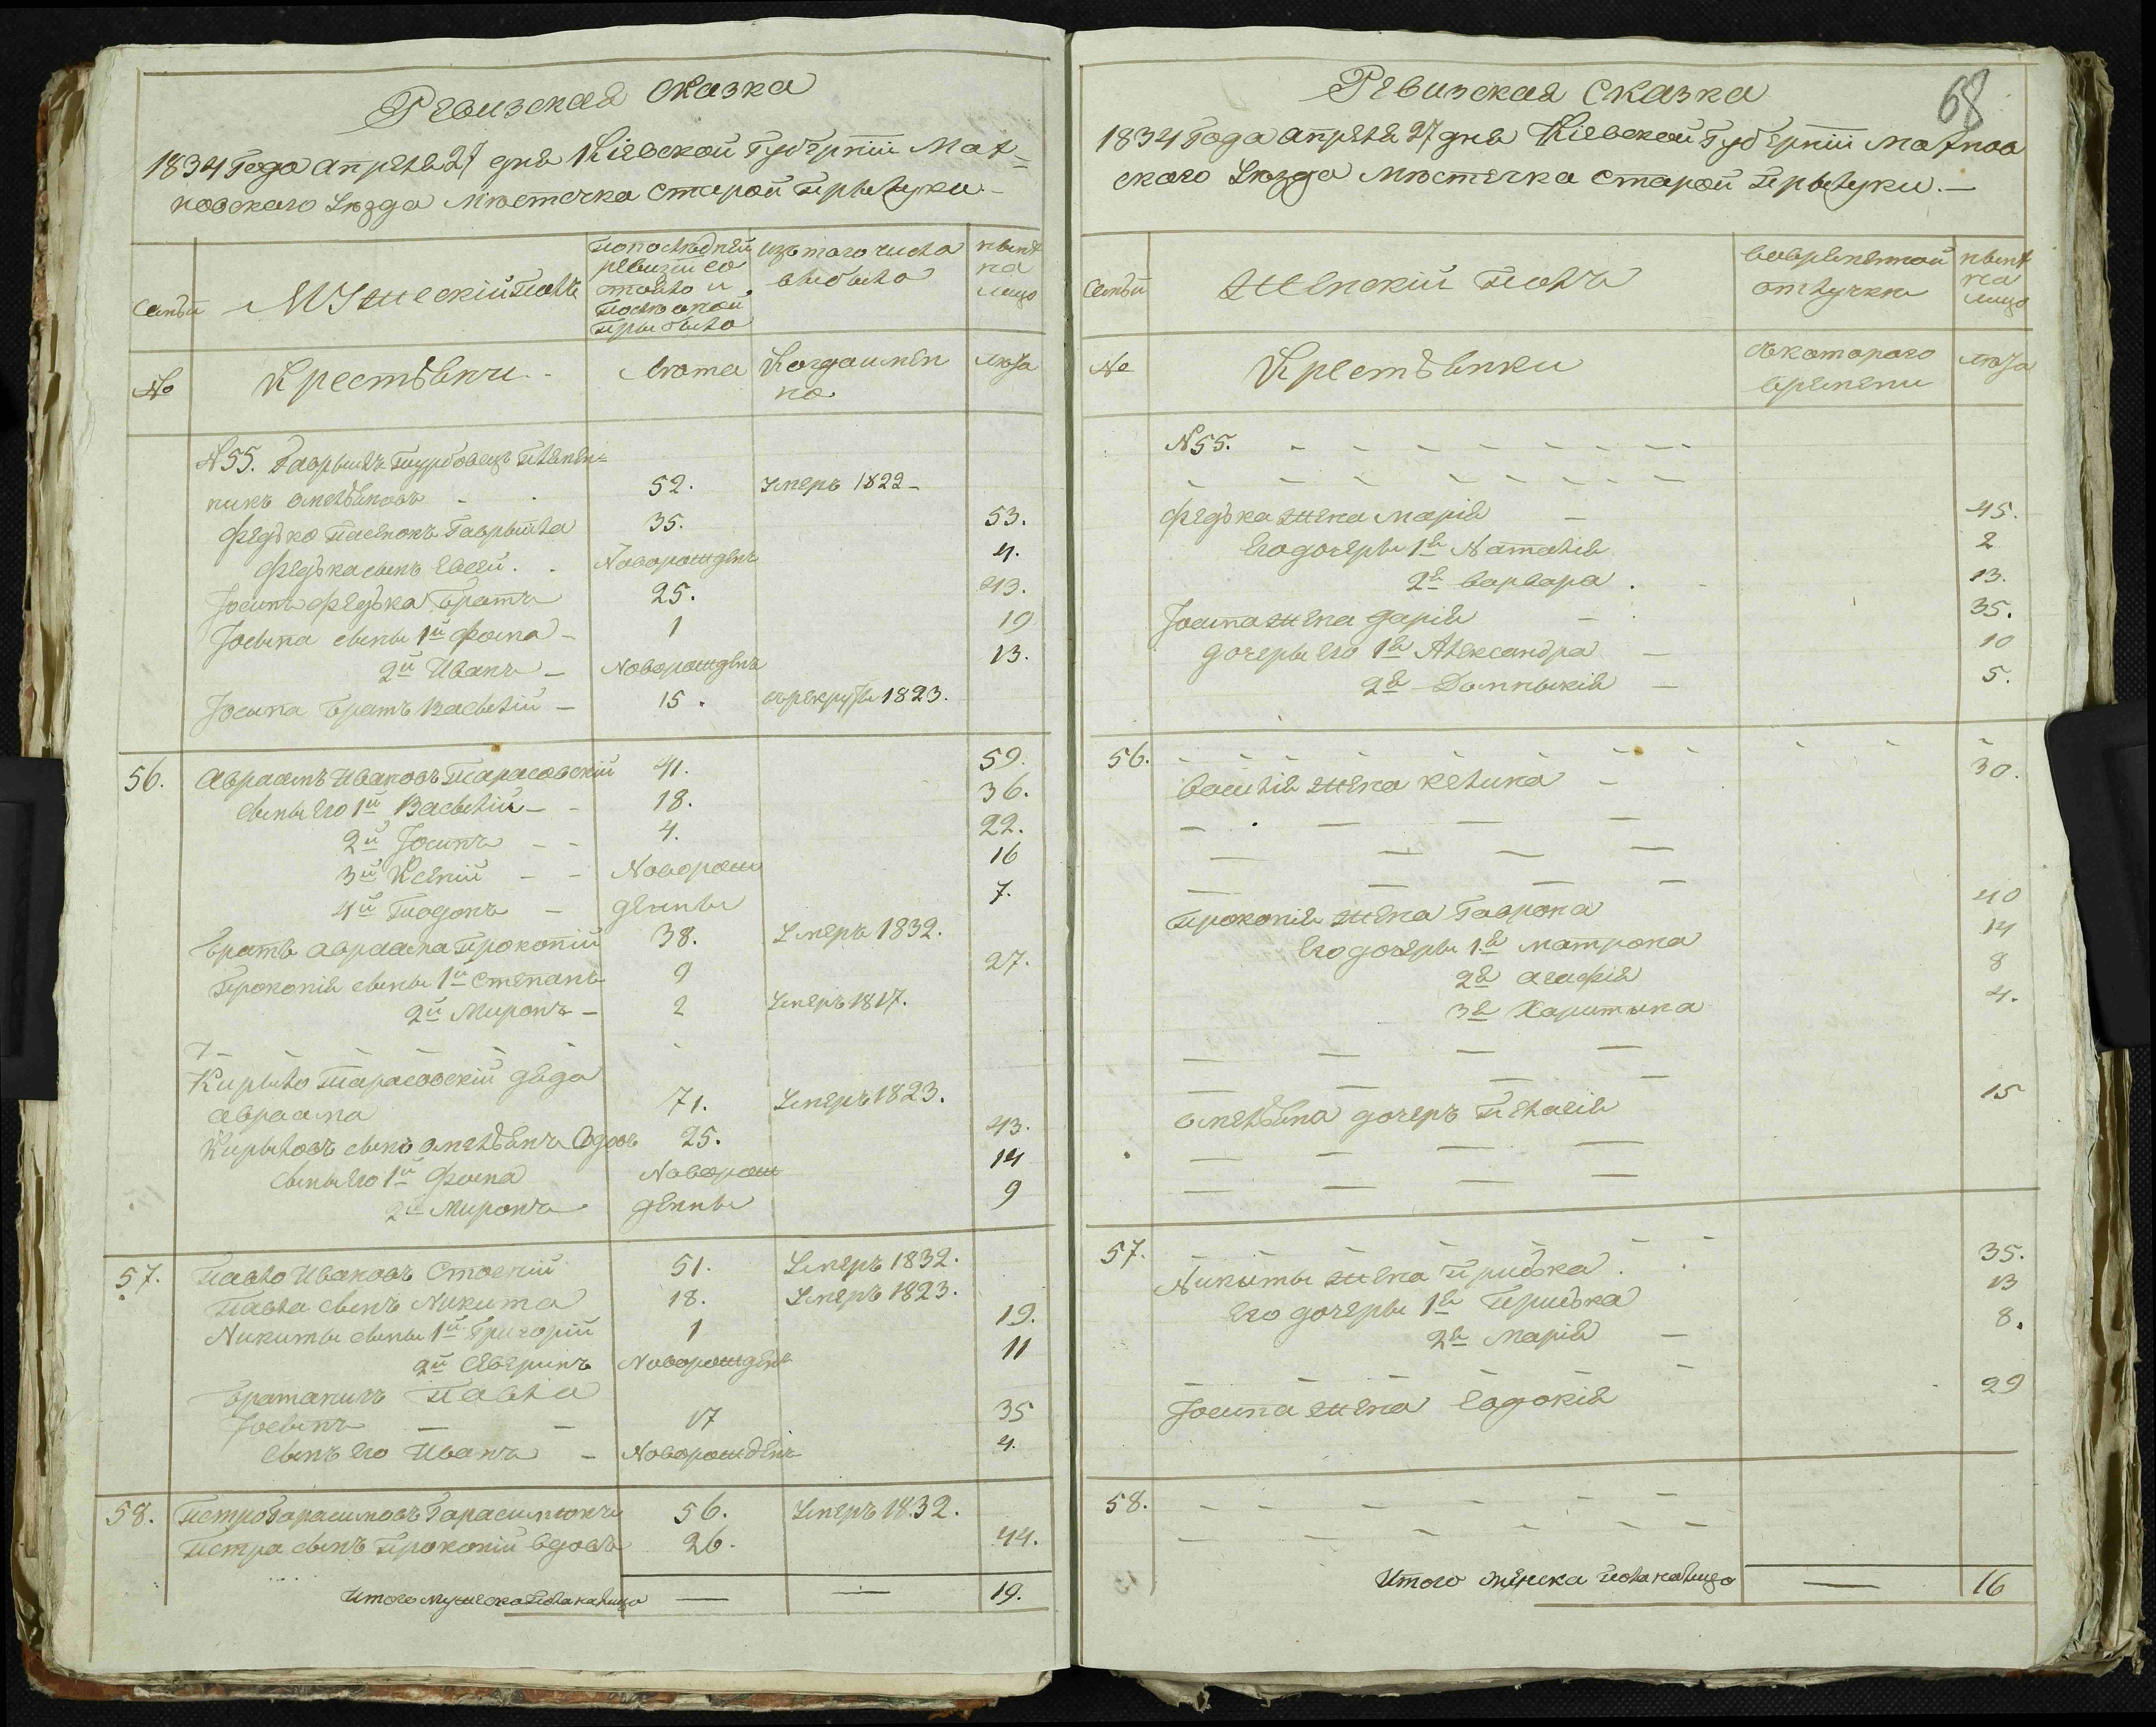 Ревизская сказка
1834 Года апреля 27 дня Кіевской Губерніи Мах=
новскаго Уезда Местечка Старой Прылуки
Семьи
Мужескій полъ
попоследней
ревизіи со
стояло и
после оной
прыбыло
изъ того числа
выбыло
ныне
на
лицо
№
Крестьяни
Лета
Когда имен
но
лета
№55. Гаврылъ
никъ Омельяновъ 52. Умеръ 1822
Федько пасенокъ Гаврыйла 35. 53.
Федька сынъ Евсей Новорожденъ 4.
Іосипъ Федька братъ 25. 43.
Іосыпа сыны 1й Фома 1 19
2й Иванъ Новорожденъ 13.
Іосыпа братъ Васылій 15. 1823.
56. Авраамъ Ивановъ Тарасовскій 41. 59.
сыны его 1й Васылій 18. 36.
2й Іосипъ 4. 22.
3й Новорож 16
4й денны 7.
братъ Авраама Прокопій 38. Умеръ 1832.
Прокопія сыны 1й Степанъ 9 27.
2й Миронъ 2 Умеръ 1817.
Кирыло Тарасовскій деда
Авраама 71. Умеръ 1823.
Кирыловъ сынъ Омельянъ вдовъ 25. 43.
сыны его 1й Фома Новорож 14
2й Миронъ денны 9
57. Павло Ивановъ 51. Умеръ 1832.
Павла сынъ Никита 18. Умеръ 1823.
Никиты сыны 1й Григорій 1 19.
2й Аверинъ Новорожденъ 11
братаничъ Павла
Іосыпъ 17 35
сынъ его Иванъ Новорожденъ 4.
58. Петро Гарасимовъ Гарасимюкъ 56. Умеръ 1832.
Петра сынъ Прокопій вдовъ 26. 44.
Итого мужеска пола налицо 19.
68
Ревизская Сказка
1834 Года апреля 27 дня Кіевской Губерніи Махнов
скаго Уезда Местечка Старой Прылуки.
Семьи
Женскій полъ
вовременной
отлучки
ныне
на
лицо
№
Крестьянки
съ котораго
времени
лета
№55.
Федька жена Марія 45.
Его дочеры 1я Наталія 2
2я Варвара 13.
Іосипа жена Дарія 35.
дочеры его 1я Александра 10
2я Домныкія 5.
56.
Василія жена Келина 30.
Прокопія жена Гаврона 40
Его дочеры 1я Матрона 14
2я Агафія 8
3я Харитына 4.
Омельяна дочеръ Пелагія 15
57.
Никиты жена Приська 35.
Его дочеры 1я Приська 13
2я Марія 8.
Іосипа жена Евдокія 29
58.
Итого женска пола налицо 16